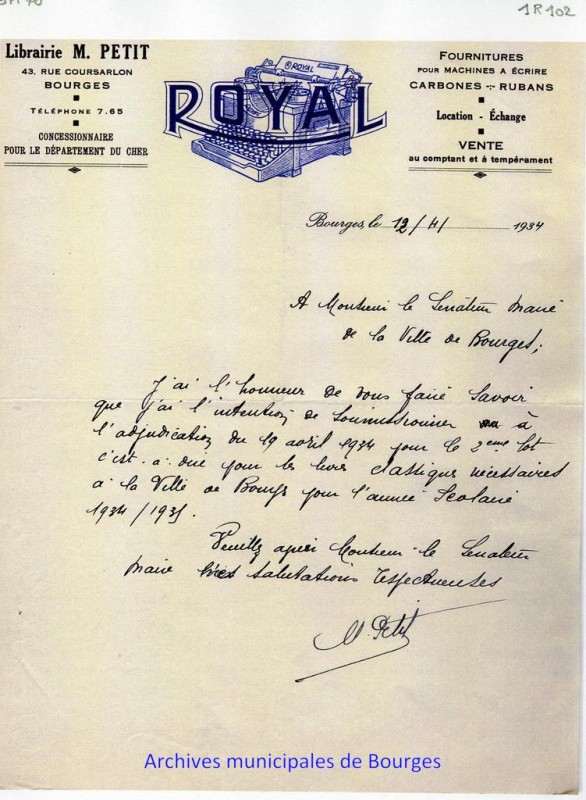 1R102
Librairie M. PETIT
43. RUE COURSARLON
BOURGES
TÉLÉPHONE 7.65
CONCESSIONNAIRE
POUR LE DÉPARTEMENT DU CHER
ROYAL
ROYAL
FOURNITURES
POUR MACHINES A ÉCRIRE
CARBONES - RUBANS
Location - Échange
VENTE
au comptant et à tempérament
Bourges, le 12/4/ 1934
A Monsieur le Sénateur Maire
de la Ville de Bourges;
J'ai l'honneur de vous faire savoir
que j'ai l'intention de soumissionner à
l'adjudication du 19 avril 1934 pour le 2eme lot
c'est-à-dire pour les livres classiques nécessaires
à la Ville de Bourges pour l'année Scolaire
1934/1935.
Veuillez agréer Monsieur le Senateur
Maire mes salutations respectueuses
M. Petit
Archives municipales de Bourges